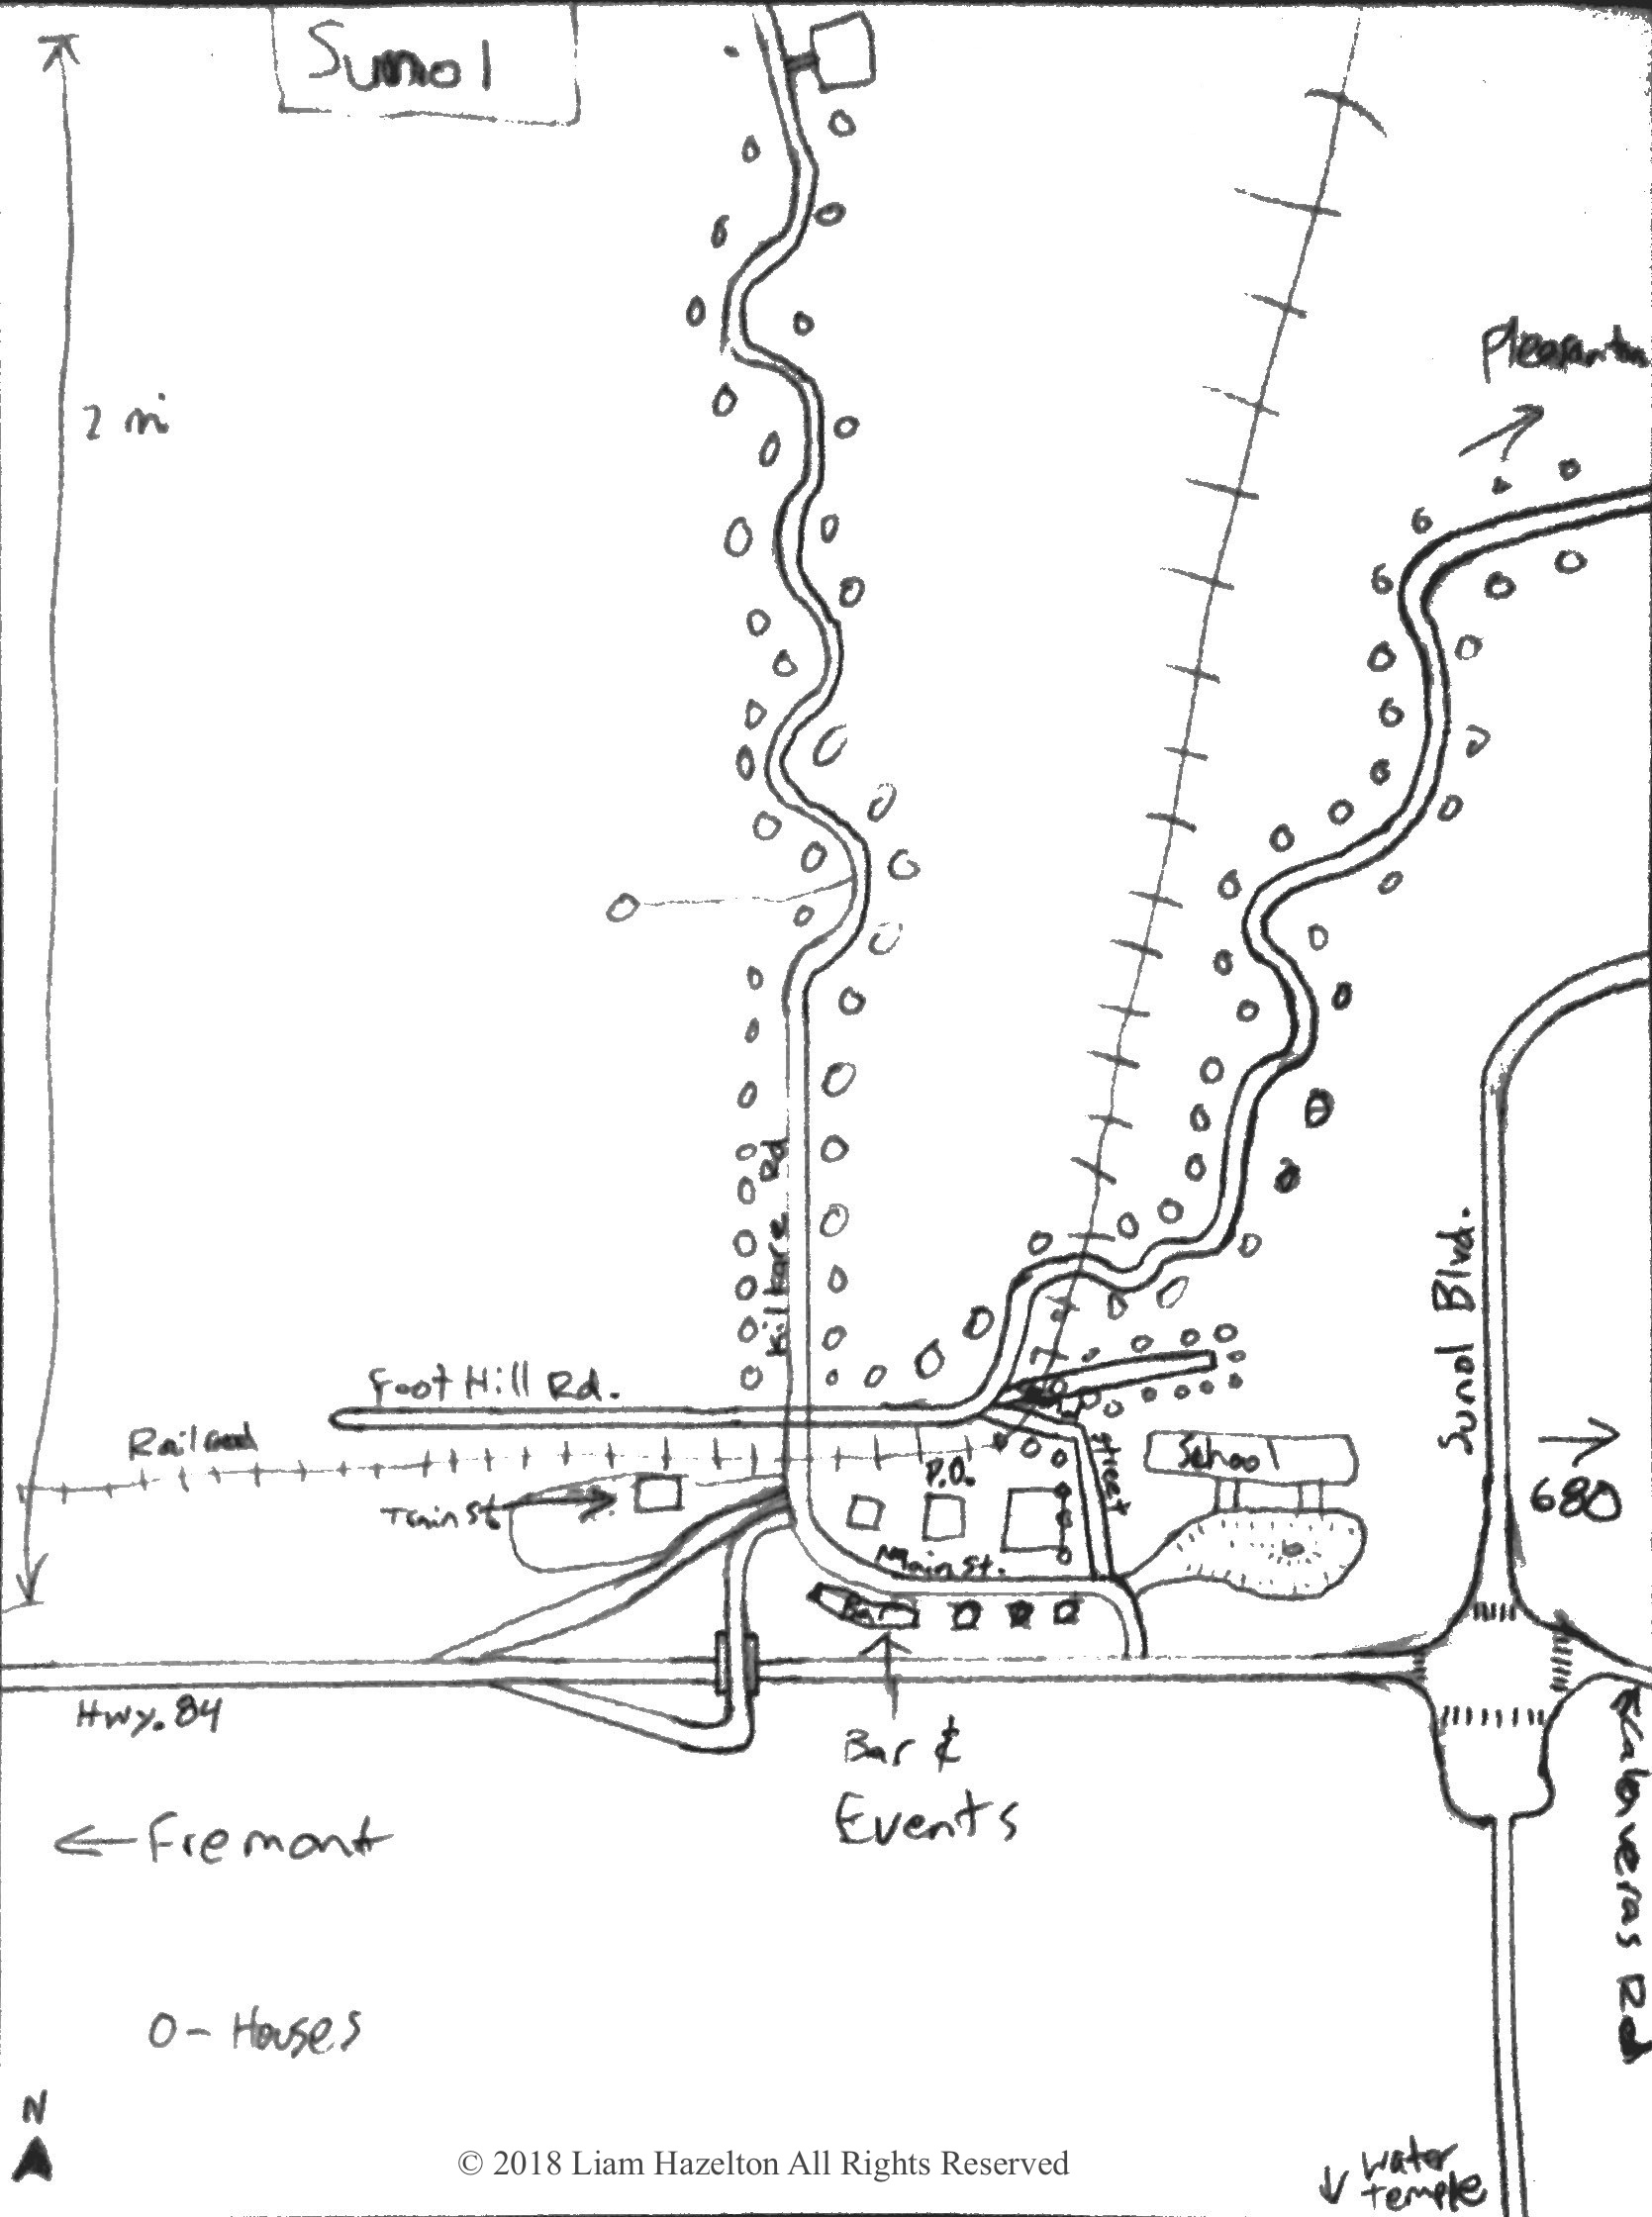 Sunol
Pleasanton
2 mi
Kilkare Rd
Sunol Blvd.
Foot Hill Rd.
Railroad
P.O.
Street
School
→
680
Train St.
Main St.
Bar
Hwy. 84
Bar &
Events
Calaveras Rd
← Fremont
O - Houses
N
© 2018 Liam Hazelton All Rights Reserved
↓ water
temple